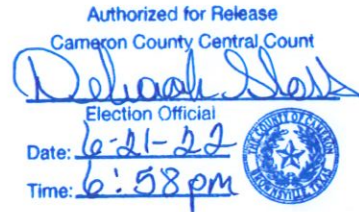 Authorized for Release
Cameron County Central Count
Deborah
Election Official
Date: 6-21-22
Time: 6:58 pm
COUNTY OF CAMERON
BROWNSVILLE, TEXAS